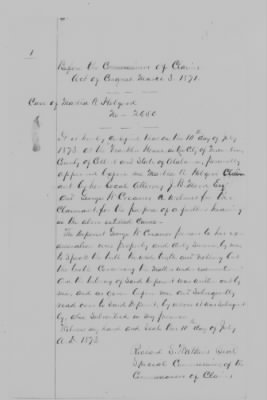 1
Before the Commissioners of Claims
Act of Congress March 3. 1871.
Case of Martha A. Hobgood
No — 2060
It is hereby certified that on the 10th day of July
1873 at the Franklin House in City of Tuscumbia
County of Colbert and State of Alabama, personally
appeared before me Martha A. Hobgood Claimant
and by her Local Attorney J. B. Moore Esq
and George W. Creamer a Witness for the
Claimant for the purpose of a hearing
in the above entitled Cause—
The deponent George W. Creamer previous to his ex-
amination was properly and duly sworn by me
to speak the truth the whole truth and nothing but
the truth Concerning the matters under examination
And the testimony of Said deponent was written out by
me, and as given before me, and Subsequently
read over to Said deponent by whom it was
by also Subscribed in my presence
Witness my hand and Seal this 10th day of July
A.D. 1873
Seal
Special Commissioner of the
Commissioners of Claims